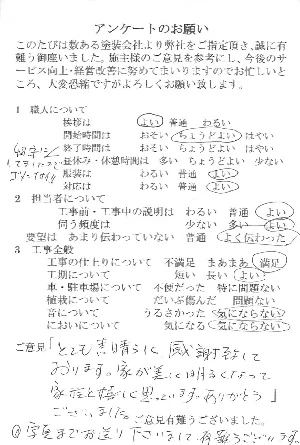 アンケートのお願い
このたびは数ある塗装会社より弊社をご指定頂き、誠に有
難う御座いました。施主様のご意見を参考にし、今後のサ
ービス向上・経営改善に努めてまいりますのでお忙しいと
ころ、大変恐縮ですがよろしくお願い致します。
1 職人について
挨拶は よい 普通 わるい
開始時間は おそい ちょうどよい はやい
終了時間は おそい ちょうどよい はやい
昼休み・休憩時間は 多い ちょうどよい 少ない
服装は わるい 普通 よい
対応は わるい 普通 よい
2 担当者について
工事前・工事中の説明は わるい 普通 よい
伺う頻度は 少ない 多い よい
要望は あより伝わっていない 普通 よく伝わった
3 工事全般
工事の仕上りについて 不満足 まあまあ 満足
工期について 短い 長い よい
車・駐車場について 不便だった 特に問題ない
植栽について だいぶ傷んだ 問題ない
音について うるさかった 気にならない
においについて 気になる 気にならない
ご意見「とても素晴らしく感謝致して
おります。家が美しく明るくなって
家族と嬉しく思っています。ありがとう
ございました。」ご意見有難うございました。
写真までお送り下さいまして有難うございます。